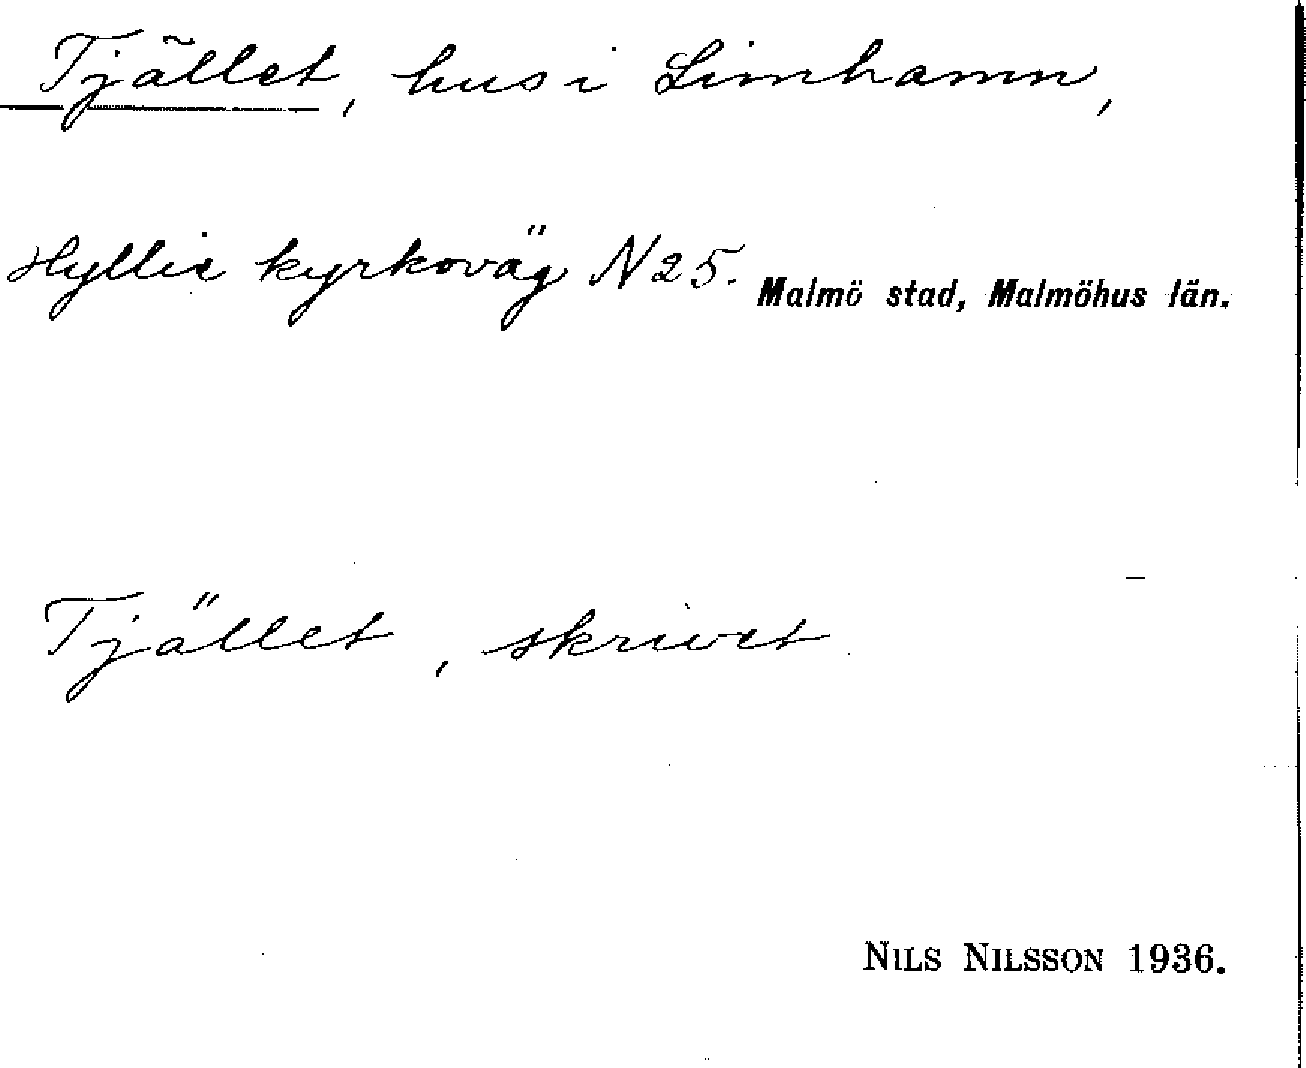 Tjället, hus i Limhamn,
Hyllie kyrkoväg N 25. Malmö stad, Malmöhus län.
Tjället, skrivet
NILS NILSSON 1936.